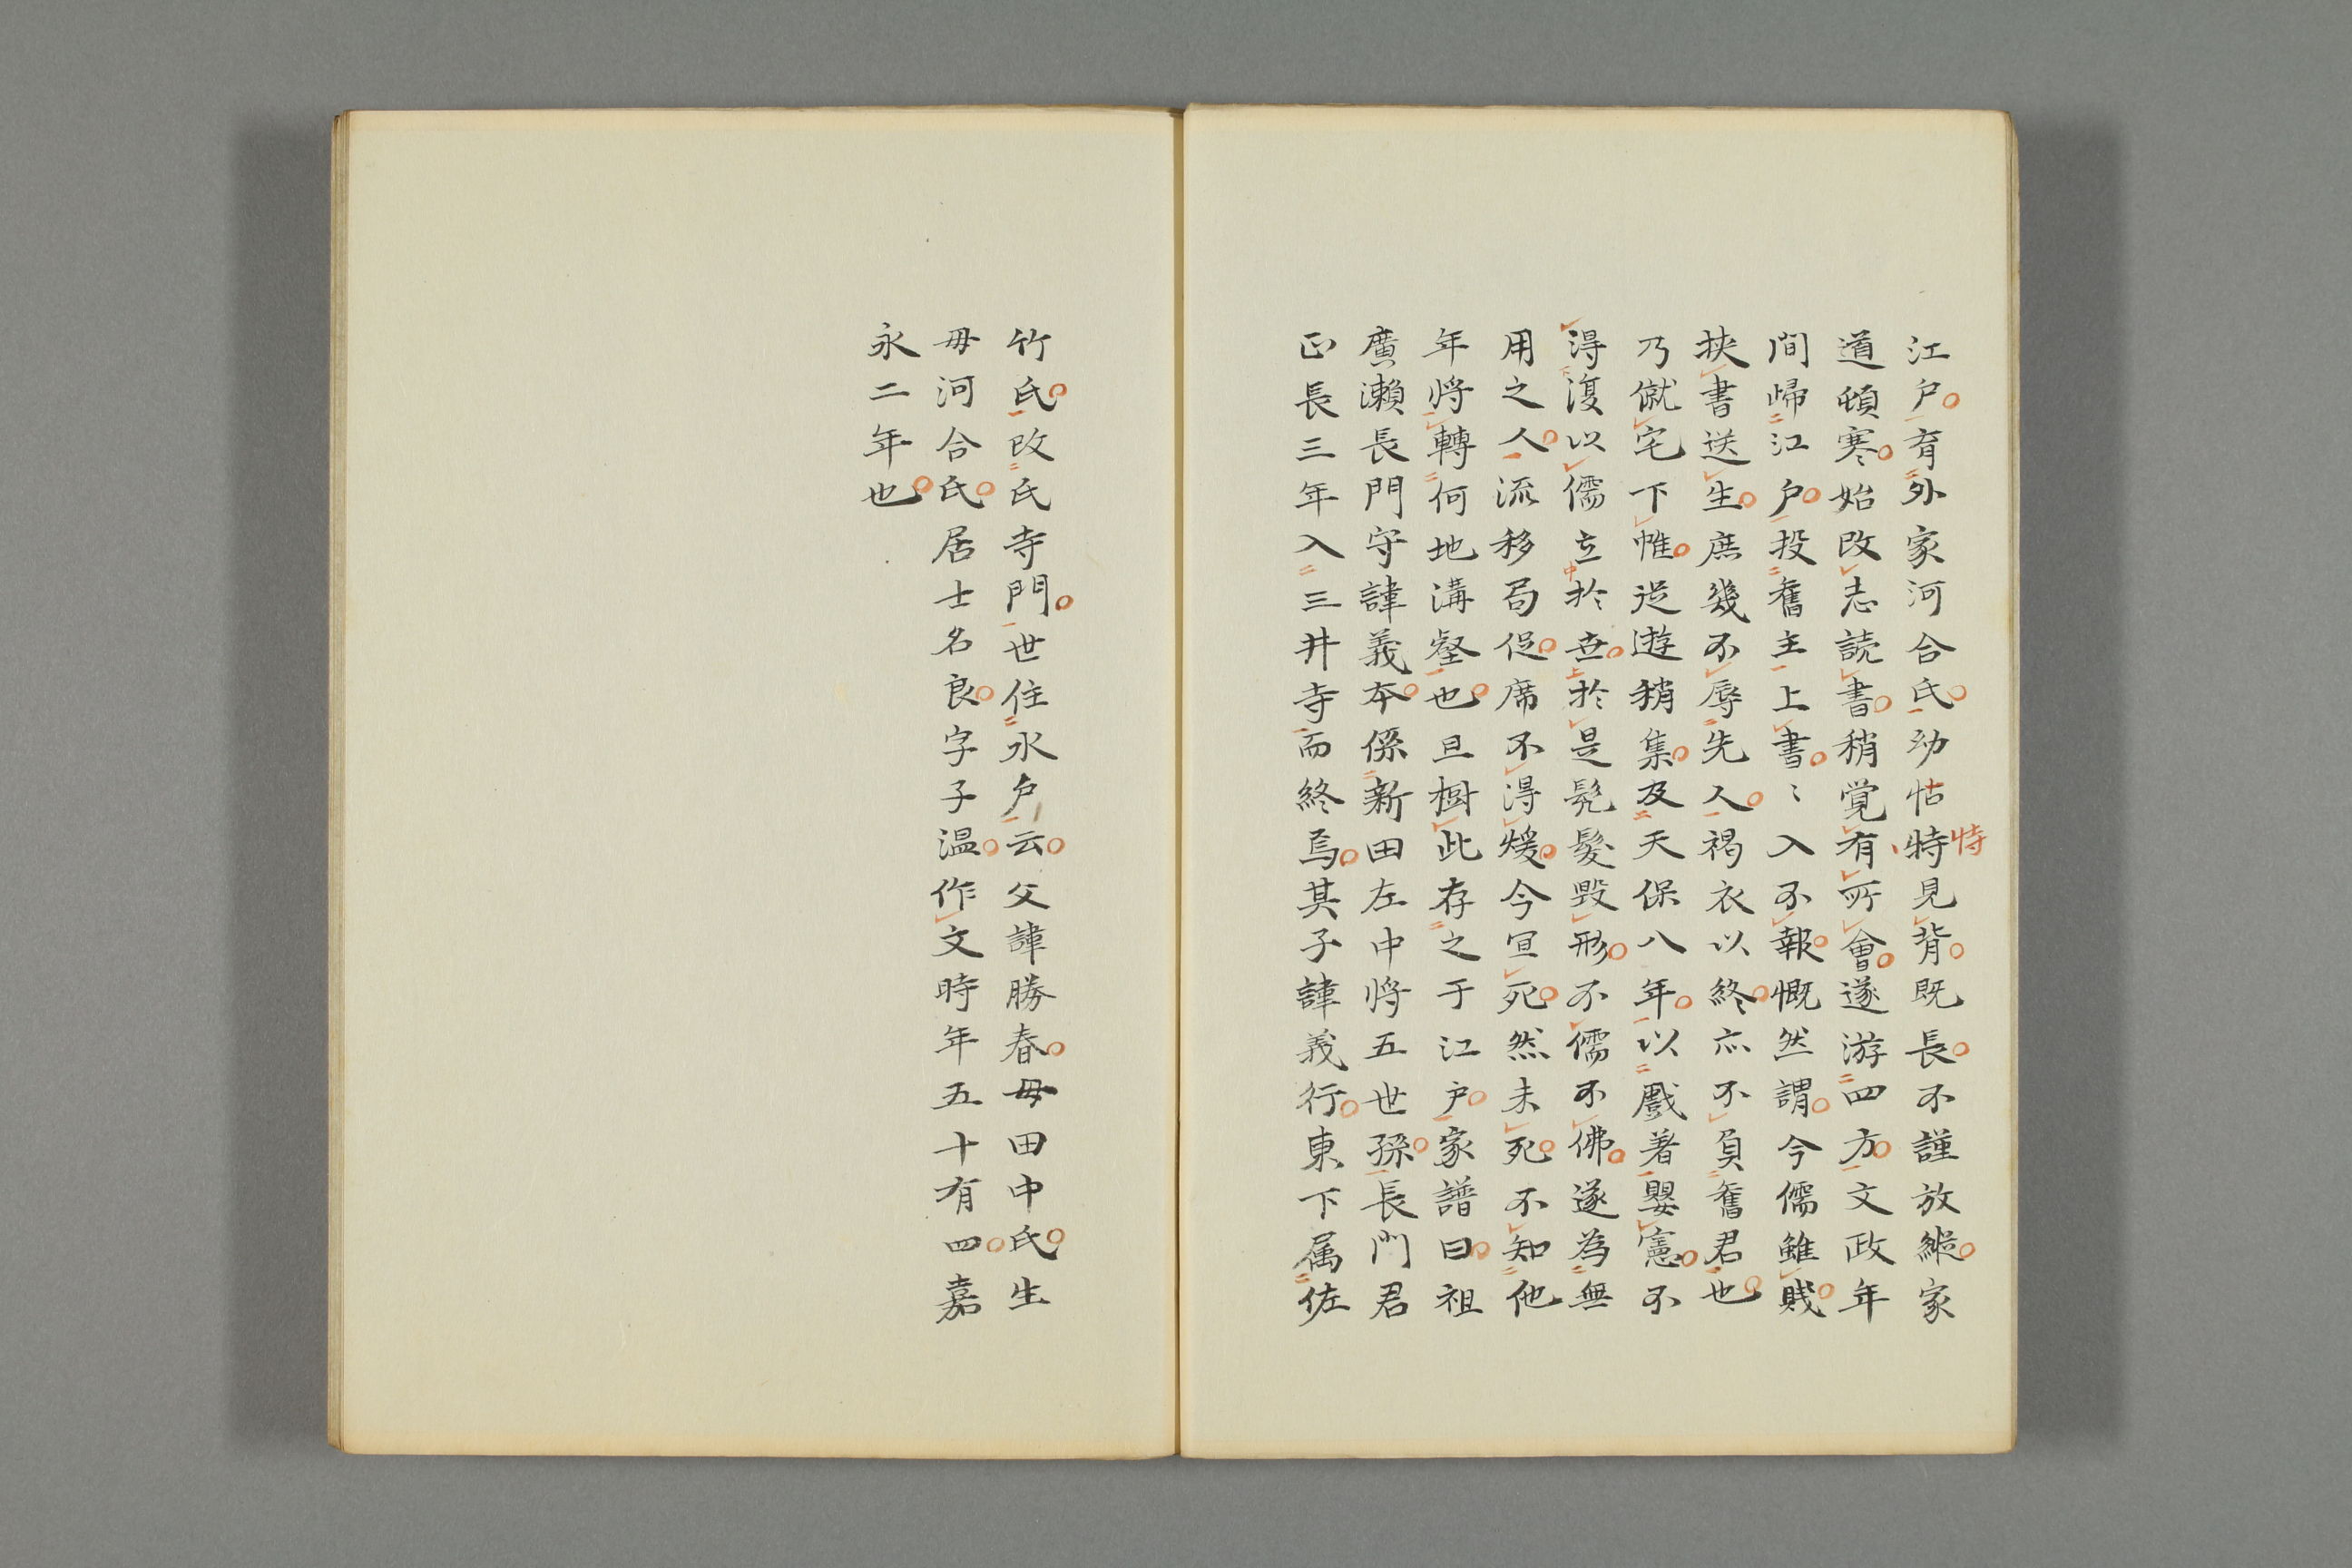 江戸育外家河合氏幼怙特見背既長不謹放縦家
恃
道頓寒始改志読書稍覚有所會遂游四方文政年
間帰江戸投舊主上書〻入不報慨然謂今儒雖賤
挾書送生庶幾不辱先人褐衣以終亦不負舊君也
乃僦宅下帷従遊稍集及天保八年以戲著嬰憲不
得復以儒立於世於是髡髮毀形不儒不佛遂為無
用之人流移局促席不得煖今宣死然未死不知他
年将轉何地溝壑也且樹此存之于江戸家譜曰祖
廣瀬長門守諱義夲係新田左中将五世孫長門君
正長三年入三井寺而終焉其子諱義行東下属佐
竹氏改氏寺門世住水戸云父諱勝春母田中氏生
母河合氏居士名良字子温作文時年五十有四嘉
永二年也